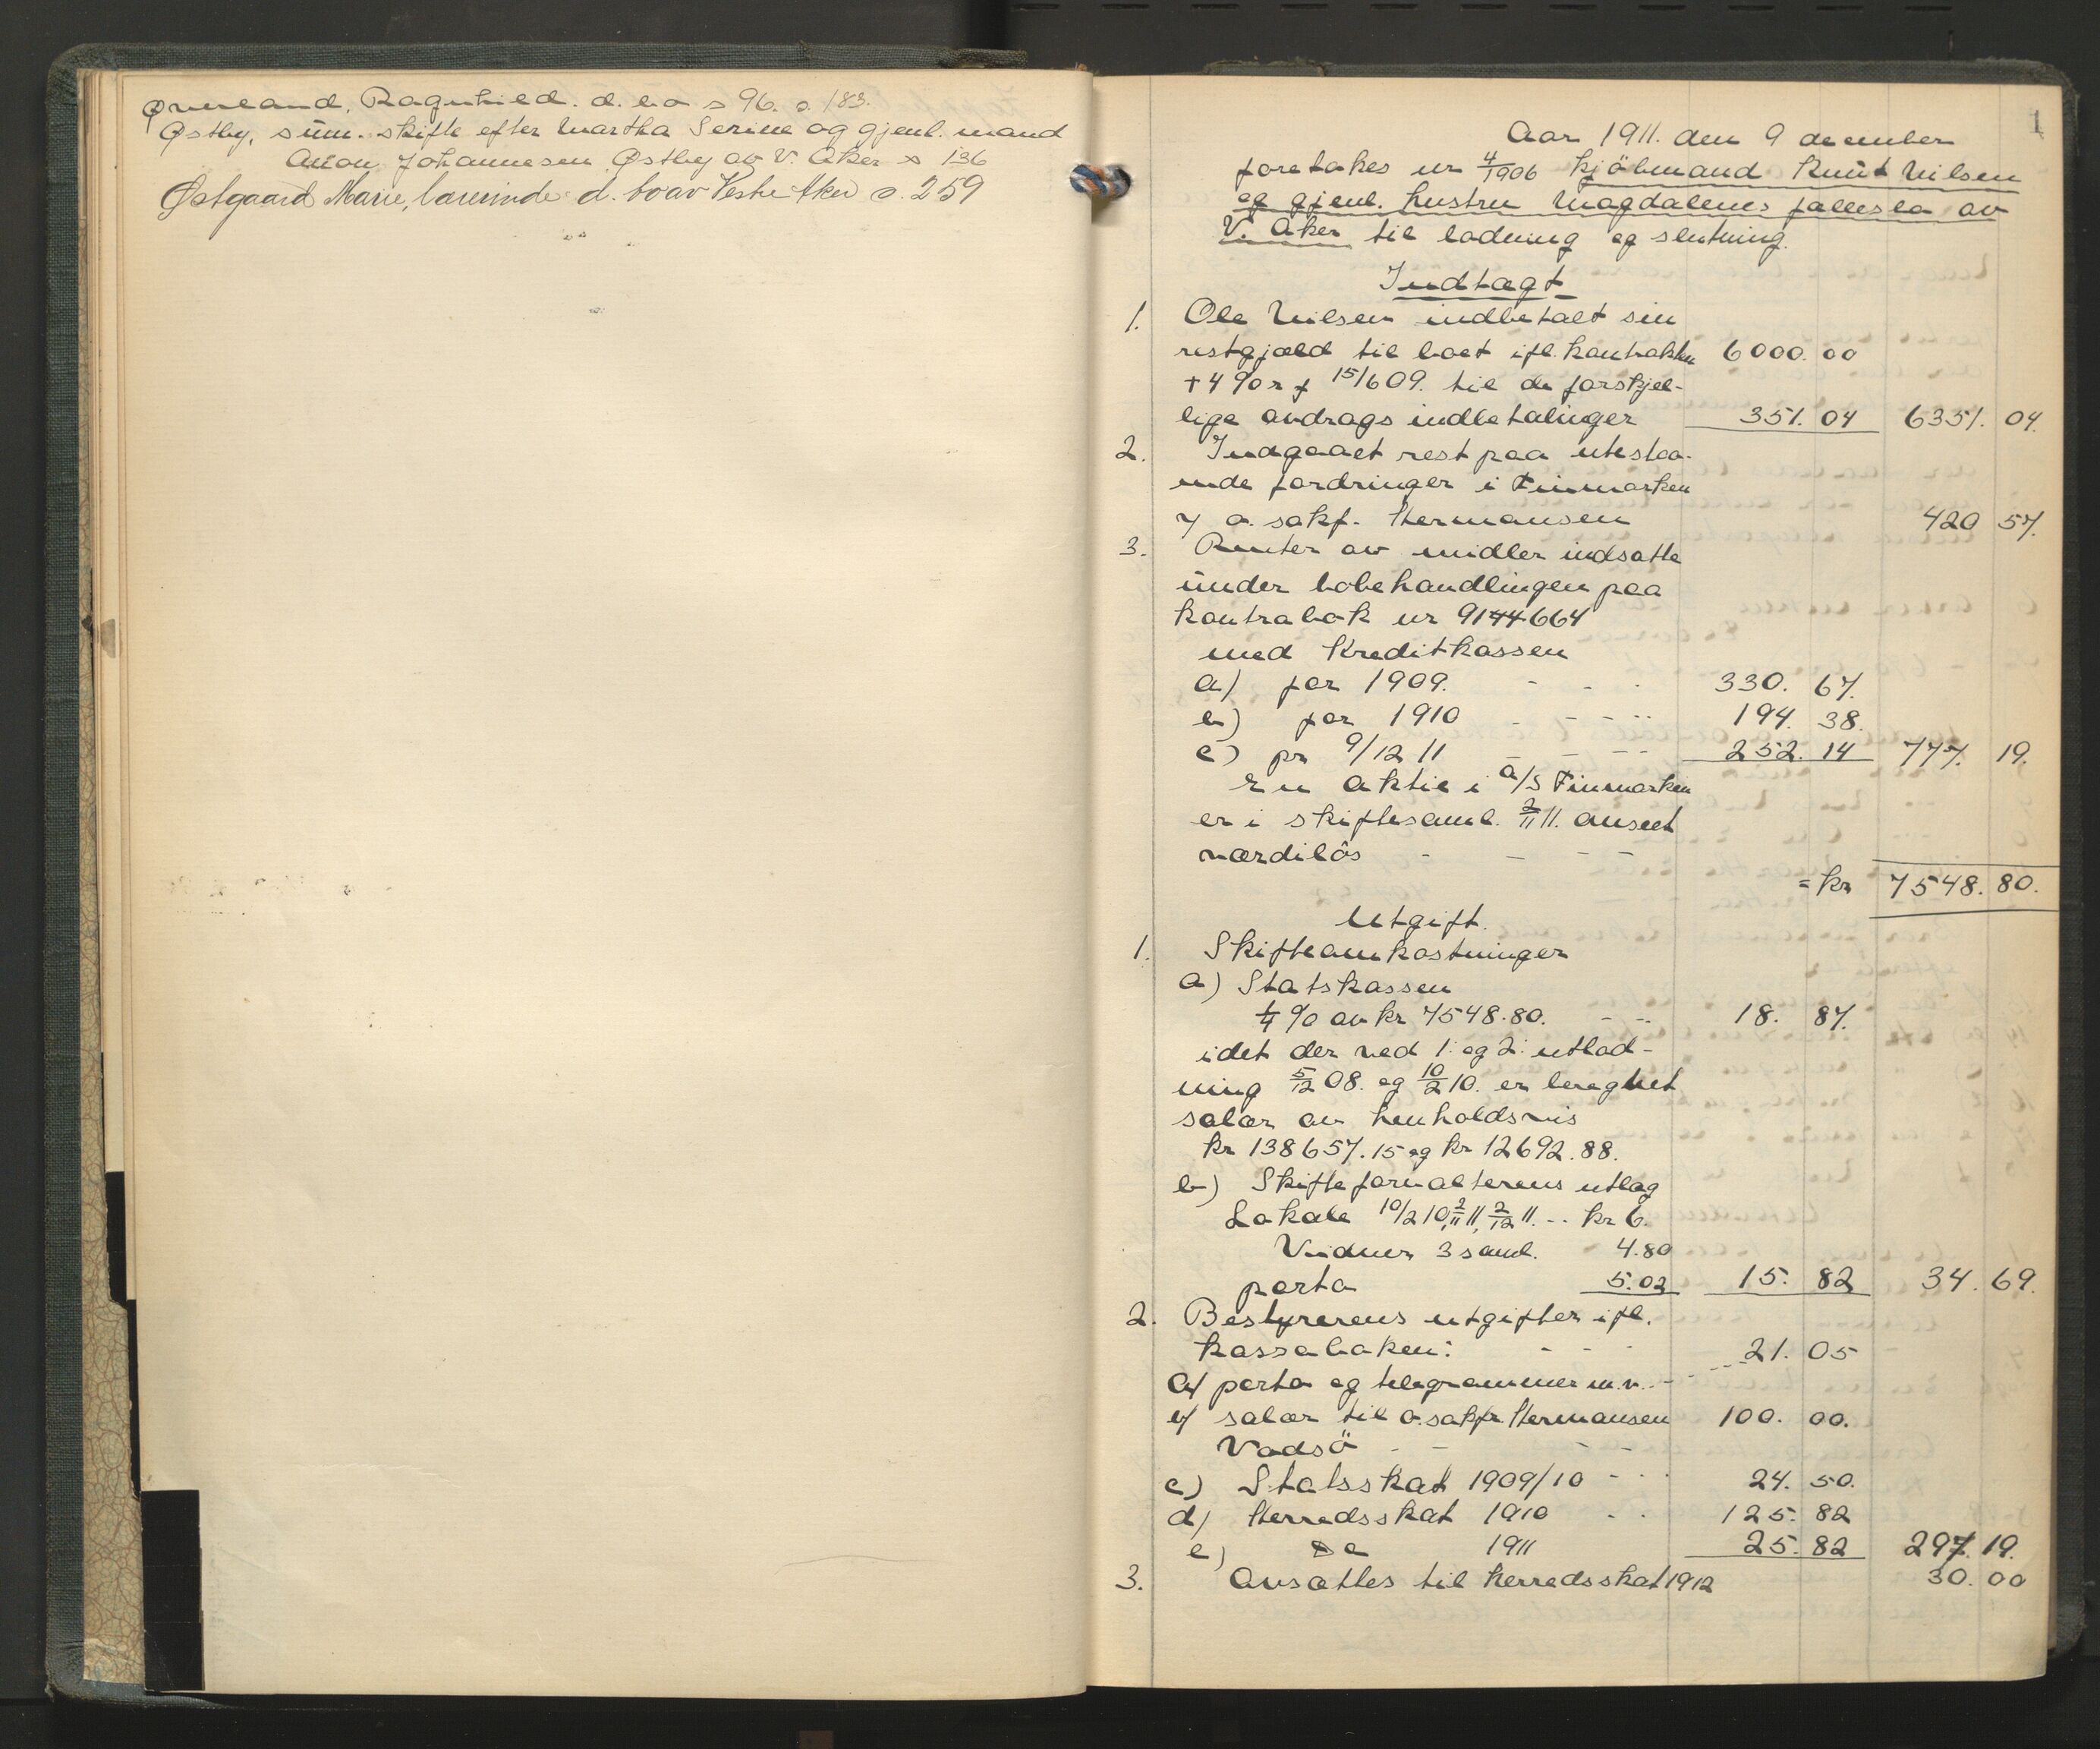 Øverland, Ragnhild. d. bo s 96. s. 183.
Østby, sum. skifte efter Martha Serine og gjenl. mand
Anton Johannesen Østby av V. Aker s 136
Østgaard Marie, lærerinde d. bo av Vestre Aker s. 259
1
Aar 1911. den 9 december
foretakes nr 4/1906 kjöbmand Knut Nilsen
og gjenl. hustru Magdalenes fællesbo av
V. Aker til lodning og slutning.
Indtægt
1. Ole Nilsen indbetalt sin
restgjæld til boet ifl. kontrakten 6000.00
+ 4 % r f 15/6 09. til de forskjel-
lige avdrags indbetalinger 351.04 6351.04.
2. Indgaaet rest paa utestaa-
ende fordringer i Finmarken
v o. sakf. Hermansen 420 57.
3. Renter av midler indsatte
under bobehandlingen paa
kontrabok nr 9144664
med Kreditkassen
a) for 1909. - - - 330.67.
b) for 1910 - - - - 194.38.
c) pr 9/12 11 - - - - 252.14 777.19.
En aktie i A/S Finmarken
er i skiftesaml. 2/11 11. anseet
værdilös - - - -
= kr 7548.80.
Utgift.
1. Skifteomkostninger
a) Statskassen
1/4 % av kr 7548.80. - - 18.87.
idet der ved 1. og 2. utlod-
ning 5/12 08. og 10/2 10. er beregnet
salær av henholdsvis
kr 138657.15 og kr 12692.88.
b) Skifteforvalterens utlæg
Lokale 10/2 10, 2/11 11, 2/12 11. -- kr 6.
Vidner 3 saml. 4.80
porto 5.02 15.82 34.69.
2. Bestyrerens utgifter ifl.
kassaboken: - - - 21.05
a) porto og telegrammer m.v. - -
b) salær til o. sakfr Hermansen 100.00.
Vadsö - - - -
c) Statsskat 1909/10 - - - 24.50.
d) Herredsskat 1910 - - 125.82
e) Do 1911 25.82 297.19.
3. Avsættes til herredsskat 1912 30.00